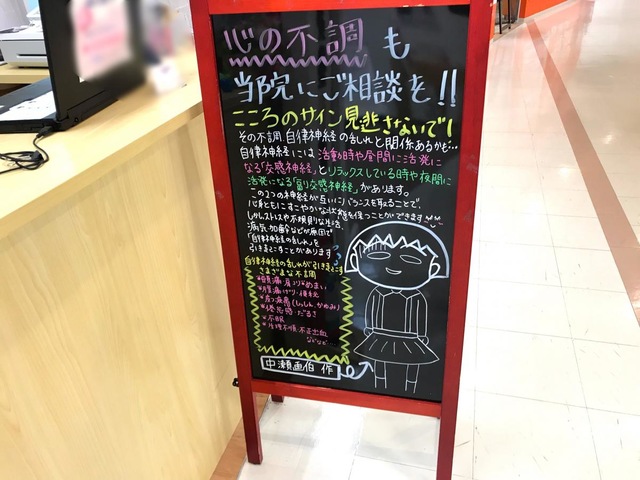 心の不調 も
当院にご相談を!!
こころのサイン見逃さないで!
その不調 自律神経の乱れと関係あるかも…
自律神経には活動時や昼間に活発に
なる「交感神経」とリラックスしている時や夜間に
活発になる「副交感神経」があります。
この2つの神経が互いにバランスを取ることで、
心身ともにすこやかな状態を保つことができます
しかしストレスや不規則な生活、
病気・加齢などが原因で
「自律神経の乱れ」を
引きおこすことがあります
自律神経の乱れが引きおこす
さまざまな不調
*頭痛・肩こり・めまい
*腹痛・下り・便秘
*皮フ疾患(しっしん・かゆみ)
*倦怠感・だるさ
*不眠
*生理不順・不正出血
などなど
中瀬画伯 作